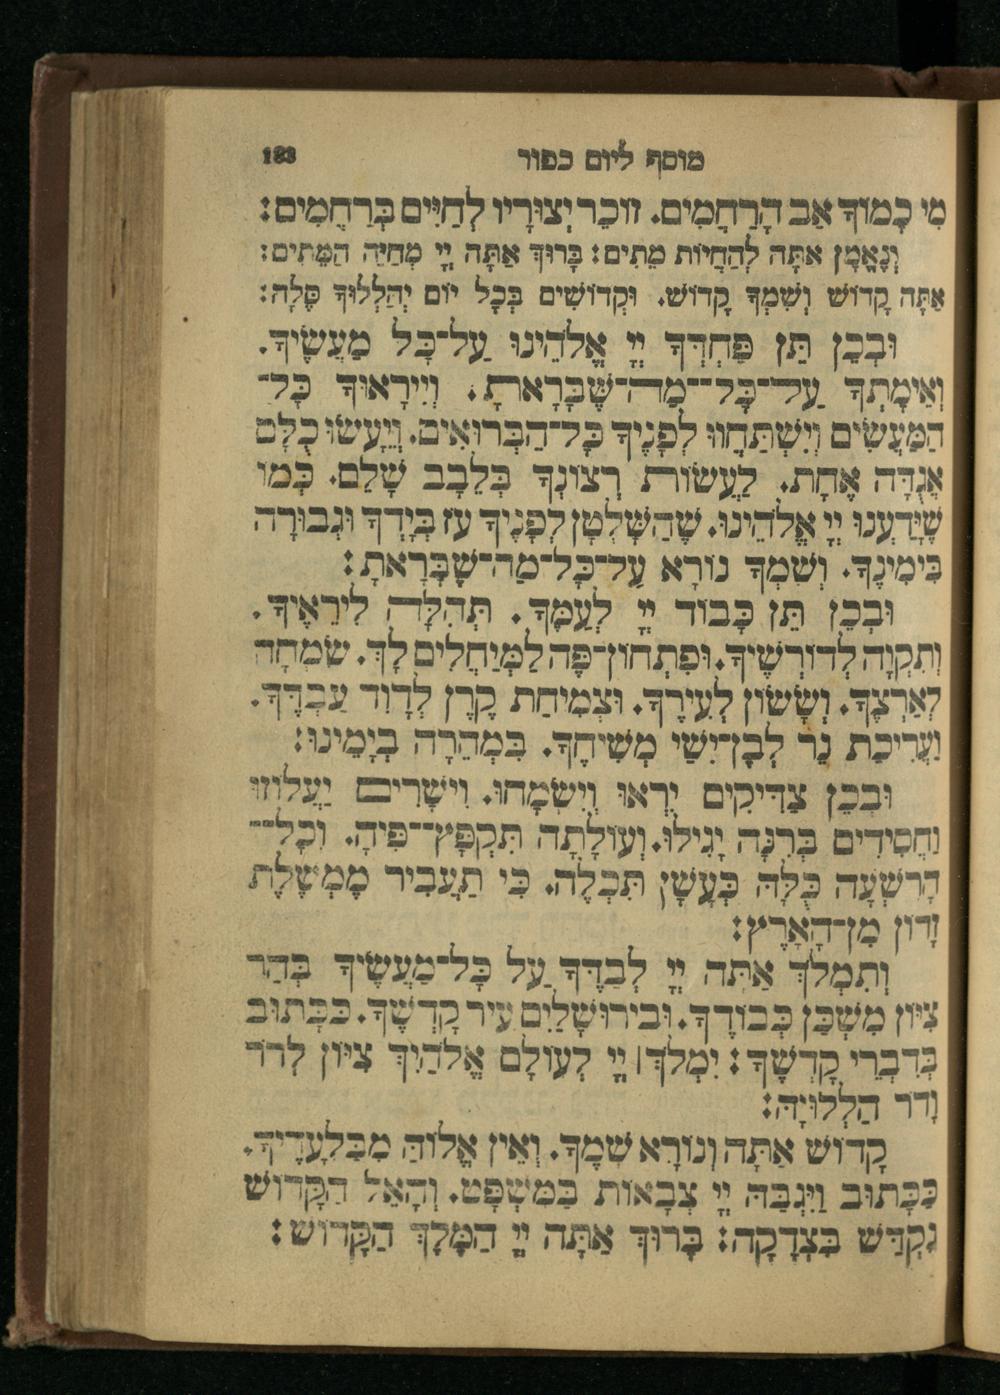 מוסף ליום כפור 183
מִי כָמוֹךָ אַב הָרַחֲמִים. זוֹכֵר יְצוּרָיו לְחַיִּים בְּרַחֲמִים:
וְנֶאֱמָן אַתָּה לְהַחֲיוֹת מֵתִים: בָּרוּךְ אַתָּה יְיָ מְחַיֵּה הַמֵּתִים:
אַתָּה קָדוֹשׁ וְשִׁמְךָ קָדוֹשׁ. וּקְדוֹשִׁים בְּכָל יוֹם יְהַלְלוּךָ סֶּלָה:
וּבְכֵן תֵּן פַּחְדְּךָ יְיָ אֱלֹהֵינוּ עַל־כָּל מַעֲשֶׂיךָ.
וְאֵימָתְךָ עַל־כָּל־מַה־שֶּׁבָּרָאתָ. וְיִירָאוּךָ כָּל־
הַמַּעֲשִׂים וְיִשְׁתַּחֲווּ לְפָנֶיךָ כָּל־הַבְּרוּאִים. וְיֵעָשׂוּ כֻלָּם
אֲגֻדָּה אֶחָת. לַעֲשׂוֹת רְצוֹנְךָ בְּלֵבָב שָׁלֵם. כְּמוֹ
שֶׁיָּדַעְנוּ יְיָ אֱלֹהֵינוּ. שֶׁהַשָּׁלְטָן לְפָנֶיךָ עֹז בְּיָדְךָ וּגְבוּרָה
בִּימִינֶךָ. וְשִׁמְךָ נוֹרָא עַל־כָּל־מַה־שֶּׁבָּרָאתָ:
וּבְכֵן תֵּן כָּבוֹד יְיָ לְעַמֶּךָ. תְּהִלָּה לִירֵאֶיךָ.
וְתִקְוָה לְדוֹרְשֶׁיךָ. וּפִתְחוֹן־פֶּה לַמְיַחֲלִים לָךְ. שִׂמְחָה
לְאַרְצֶךָ. וְשָׂשׂוֹן לְעִירֶךָ. וּצְמִיחַת קֶרֶן לְדָוִד עַבְדֶּךָ.
וַעֲרִיכַת נֵר לְבֶן־יִשַׁי מְשִׁיחֶךָ. בִּמְהֵרָה בְיָמֵינוּ:
וּבְכֵן צַדִּיקִים יִרְאוּ וְיִשְׂמָחוּ. וִישָׁרִים יַעֲלוֹזוּ
וַחֲסִידִים בְּרִנָּה יָגִילוּ. וְעוֹלָתָה תִּקְפָּץ־פִּיהָ. וְכָל־
הָרִשְׁעָה כֻּלָּהּ כְּעָשָׁן תִּכְלֶה. כִּי תַעֲבִיר מֶמְשֶׁלֶת
זָדוֹן מִן־הָאָרֶץ:
וְתִמְלֹךְ אַתָּה יְיָ לְבַדֶּךָ עַל כָּל־מַעֲשֶׂיךָ בְּהַר
צִיּוֹן מִשְׁכַּן כְּבוֹדֶךָ. וּבִירוּשָׁלַיִם עִיר קָדְשֶׁךָ. כַּכָּתוּב
בְּדִבְרֵי קָדְשֶׁךָ: יִמְלֹךְ| יְיָ לְעוֹלָם אֱלֹהַיִךְ צִיּוֹן לְדֹר
וָדֹר הַלְלוּיָהּ:
קָדוֹשׁ אַתָּה וְנוֹרָא שְׁמֶךָ. וְאֵין אֱלוֹהַּ מִבַּלְעָדֶיךָ.
כַּכָּתוּב וַיִּגְבַּהּ יְיָ צְבָאוֹת בַּמִּשְׁפָּט. וְהָאֵל הַקָּדוֹשׁ
נִקְדַּשׁ בִּצְדָקָה: בָּרוּךְ אַתָּה יְיָ הַמֶּלֶךְ הַקָּדוֹשׁ: